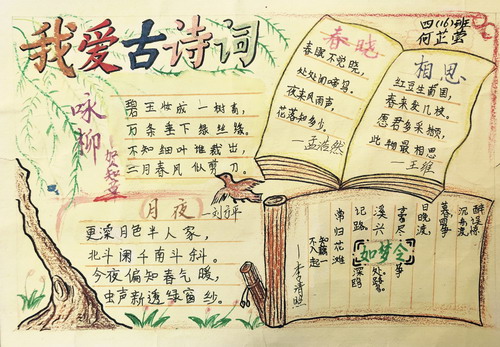 我爱古诗词
四(16)班
何芷
咏柳
贺知章
碧玉妆成一树高,
万条垂下绿丝绦。
不知细叶谁裁出,
二月春风似剪刀。
月夜
—刘方平
更深月色半人家,
北斗阑干南斗斜。
今夜偏知春气暖,
虫声新透绿窗纱。
春晓
春眠不觉晓,
处处闻啼鸟。
夜来风雨声,
花落知多少。
—孟浩然
相思
红豆生南国,
春来发几枝。
愿君多采撷,
此物最相思
—王维
如梦令
醉误惊
沉舟渡
暮回争
日晚渡
亭尽争
溪兴处鹭
记路深鸥
常归花滩
知藕一
不入起
—李清照